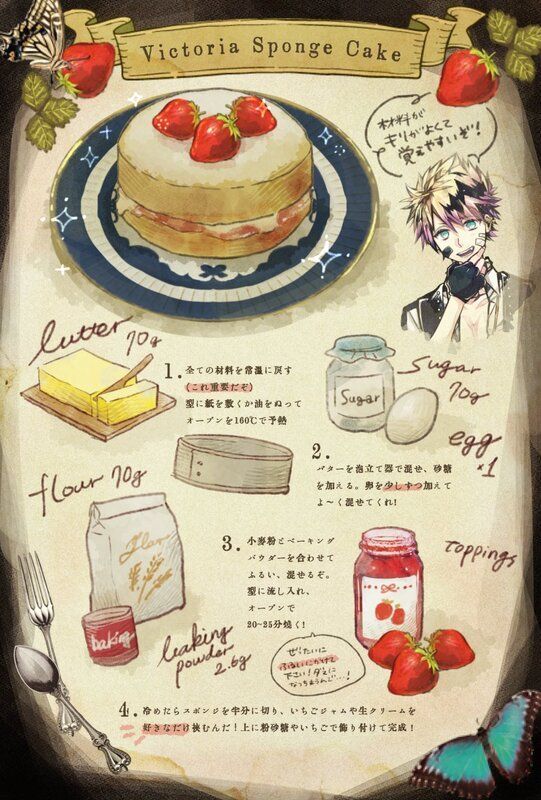 Victoria Sponge Cake
材料が
キリがよくて
覚えやすいぞ!
butter
70g
1. 全ての材料を常温に戻す
(これ重要だぞ)
型に紙を敷くか油をぬって
オーブンを160℃で予熱
Sugar
Sugar
70g
egg
×1
2.
バターを泡立て器で混ぜ、砂糖
を加える。卵を少しずつ加えて
よ〜く混ぜてくれ!
flour 70g
3. 小麦粉とベーキング
パウダーを合わせて
ふるい、混ぜるぞ。
型に流し入れ、
オーブンで
20~25分焼く!
toppings
baking
baking
powder
2.6g
ぜったいに
ふるいにかけて
下さい!ダマに
4. 冷めたらスポンジを半分に切り、いちごジャムや生クリームを
好きなだけ挟むんだ!上に粉砂糖やいちごで飾り付けて完成!